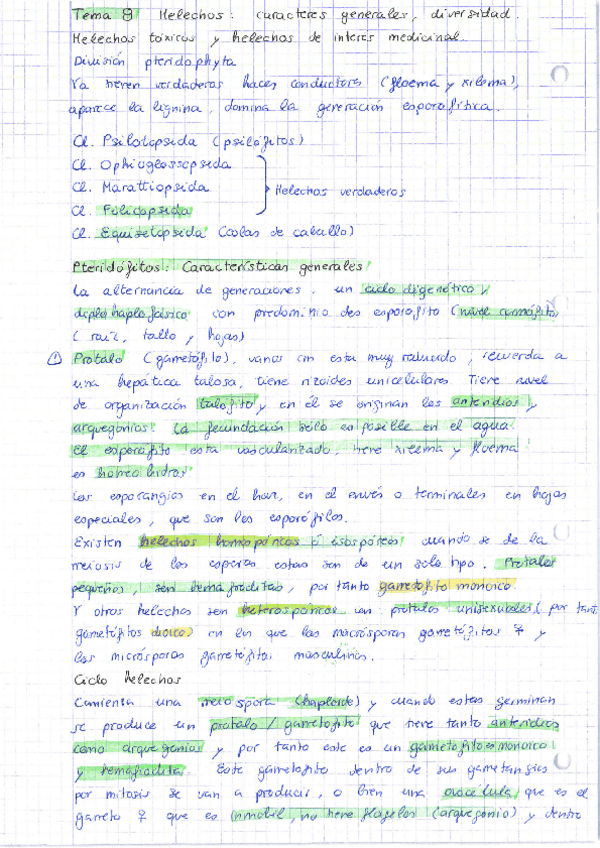 Tema 8 Helechos: caracteres generales, diversidad.
Helechos tóxicos y helechos de interés medicinal.
División pteridophyta
Ya tienen verdaderos haces conductores (floema y xilema),
aparece la lignina, domina la generación esporofítica.
Cl. Psilotopsida (psilófitos)
Cl. Ophioglossopsida
Cl. Marattiopsida
Helechos verdaderos
Cl. Filicopsida
Cl. Equisetopsida (colas de caballo)
Pteridófitos: Características generales
La alternancia de generaciones. un ciclo digenético y
diplohaplofásico con predominio des esporofito (nivel cormófito)
(raíz, tallo, hojas)
① Prótalo (gametófito), varios cm esta muy reducido, recuerda a
una hepática talosa, tiene rizoides unicelulares Tiene nivel
de organización talofito y en él se originan los anteridios y
arquegonios. La fecundación sólo es posible en el agua.
El esporofito esta vascularizado, tiene xilema y floema
es homeohidro
Los esporangios en el haz, en el envés o terminales en hojas
especiales, que son los esporófilos.
Existen helechos homospóricos ó isospóricos cuando se de la
meiosis de las esporas estas son de un solo tipo. Prótalos
pequeños, son hemafroditas, por tanto gametofito monoico.
Y otros helechos son heterospóricos con protalos unisexuales (por tanto
gametófitos dioicos) en los que las macrósporas gametófitos ♀ y
las micrósporas gametófitos masculinos.
Ciclo helechos
Comienza una meiospora (haploide) y cuando estas germinan
se produce un protalo / gametofito que tiene tanto anteridios
como arquegonios y por tanto este es un gametofito monoico
y hemafrodita. Este gametofito dentro de sus gametangios
por mitosis se van a producir, o bien una ovocélula, que es el
gameto ♀ que es inmóbil, no tiene flagelos (arquegonio) y dentro